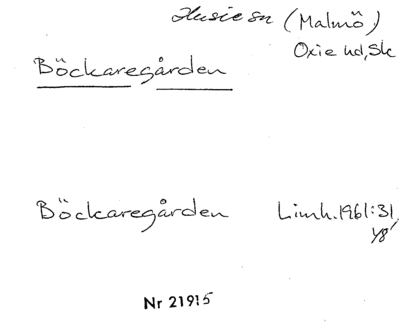 Husie sn (Malmö)
Oxie hd, Sk
Böckaregården
Böckaregården Limh. 1961:31,
48
Nr 21915